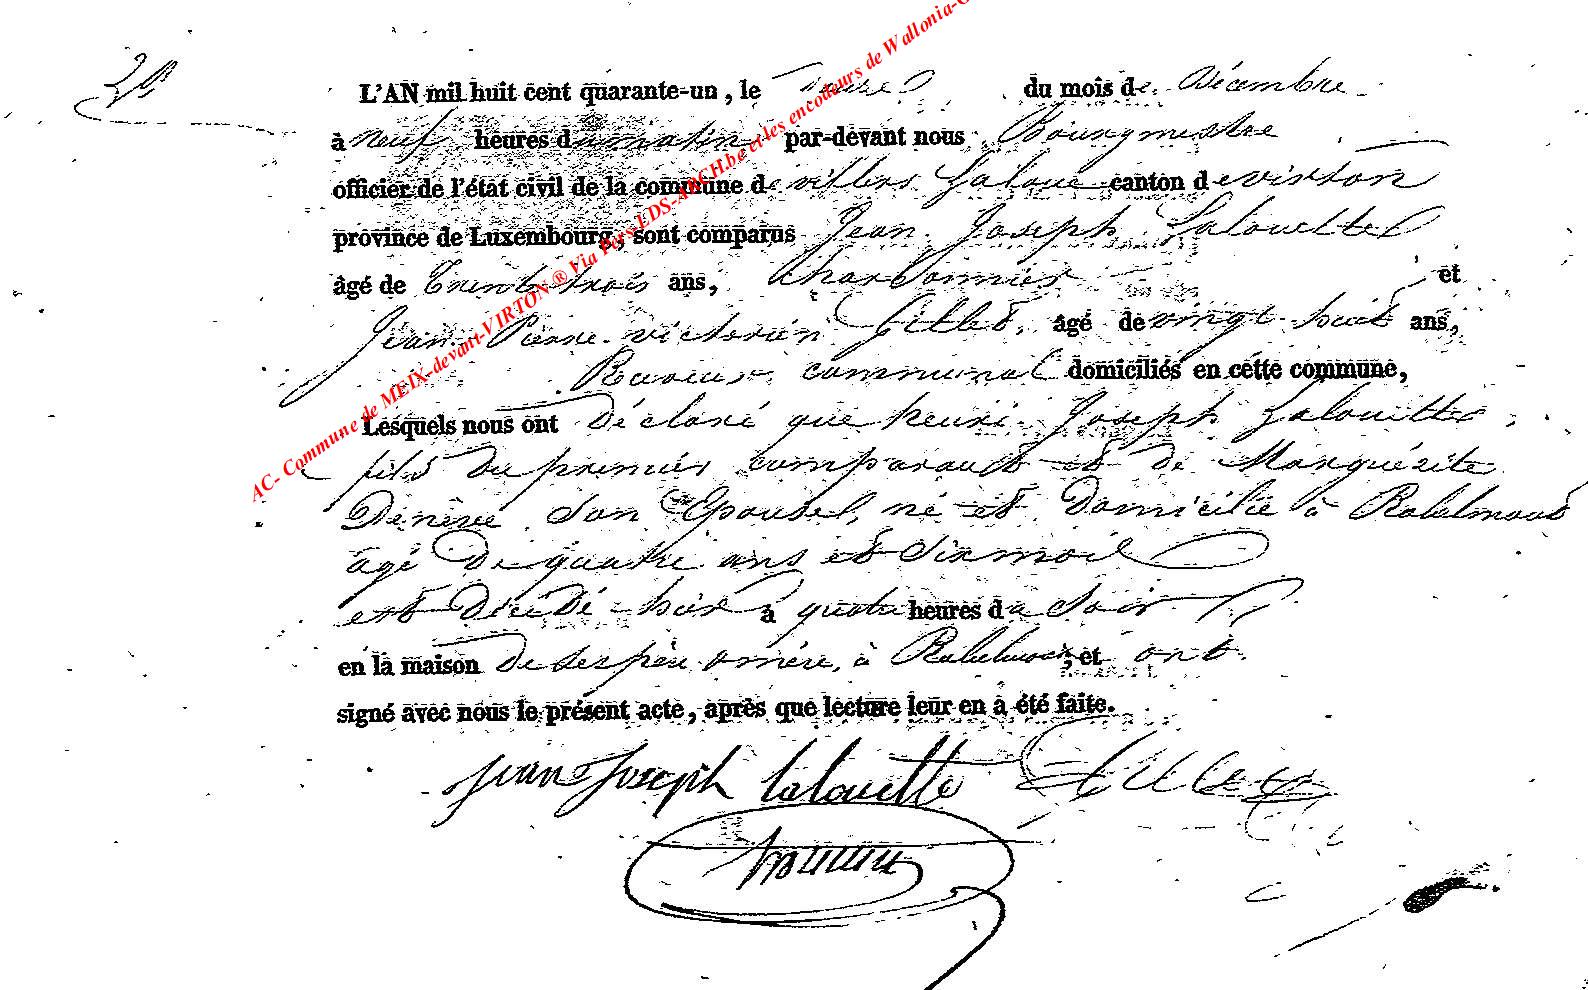 L'AN mil huit cent quarante-un, le du mois de Décembre
à neuf heures du matin par-devant nous Bourgmestre
officier de l'état civil de la commune de villers La loue canton de virton
province de Luxembourg, sont comparus Jean Joseph Lalouette
âgé de Trente trois ans, charbonnier et
Jean Pierre victorien Gillet, âgé de vingt huit ans,
Receveur communal domiciliés en cette commune,
Lesquels nous ont Déclaré que henri Joseph Lalouette,
fils du premier comparant et de Marguérite
son Epouse, né et Domicilié à
agé De quatre ans et Six mois
est Décédé hier à quatre heures du Soir
en la maison De ses père & mère, à ; et ont
signé avec nous le présent acte, après que lecture leur en à été faite.
Jean Joseph Lalouette Gillet
AC- Commune de MEIX-devant-VIRTON ® Via Pers-LDS-ARCH.be et les encodeurs de Wallonia-